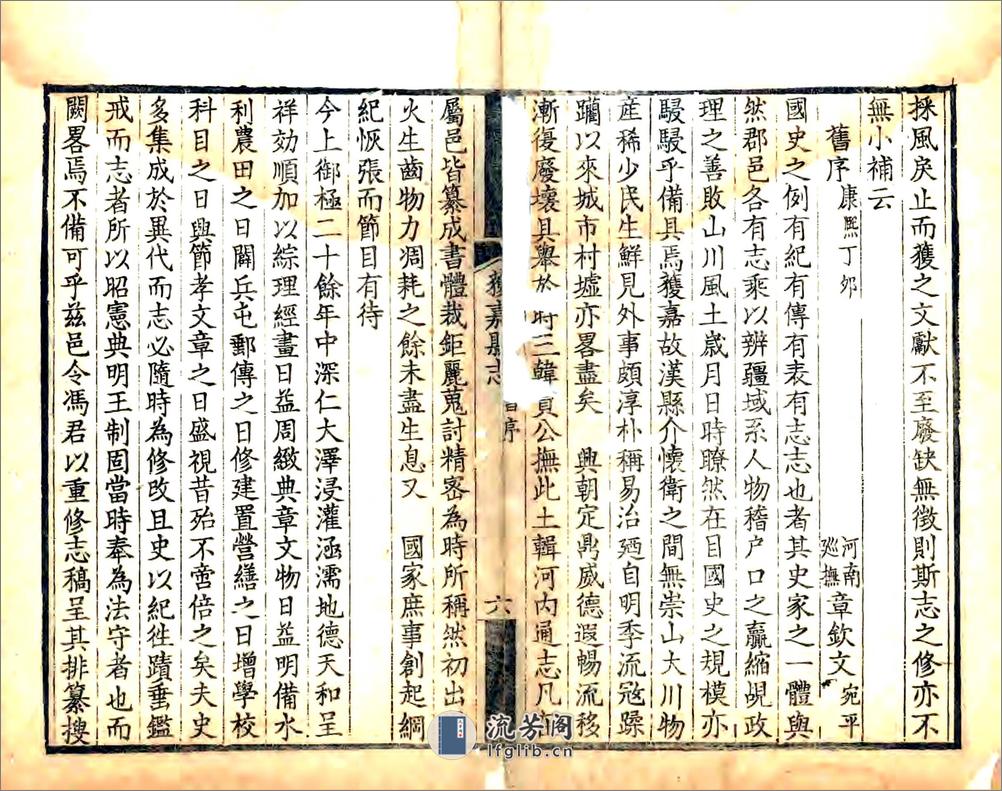 採風戾止而獲之文獻不至廢缺無徵則斯志之修亦不
無小補云
舊序康熙丁卯 河南巡撫章欽文宛平
國史之例有紀有傳有表有志志也者其史家之一體與
然郡邑各有志乘以辨疆域系人物稽户口之贏縮覘政
理之善敗山川風土歲月日時瞭然在目國史之規模亦
駸駸乎備具焉獲嘉故漢縣介懷衛之間無崇山大川物
產稀少民生鮮見外事頗淳朴稱易治廼自明季流寇躁
躪以來城市村墟亦畧盡矣 興朝定鼎威德遐暢流移
漸復廢壞具舉於時三韓賈公撫此土輯河内通志凡
獲嘉縣志
序
六
屬邑皆纂成書體裁鉅麗蒐討精密為時所稱然初出
火生齒物力凋耗之餘未盡生息又 國家庶事創起綱
紀恢張而節目有待
今上御極二十餘年中深仁大澤浸灌涵濡地德天和呈
祥効順加以綜理經畫日益周緻典章文物日益明備水
利農田之日闢兵屯郵傳之日修建置營繕之日增學校
科目之日興節孝文章之日盛視昔殆不啻倍之矣夫史
多集成於異代而志必隨時為修改且史以紀徃蹟垂鑑
戒而志者所以昭憲典明王制固當時奉為法守者也而
闕畧焉不備可乎兹邑令馮君以重修志稿呈其排纂搜
流芳阁
lfglib.cn